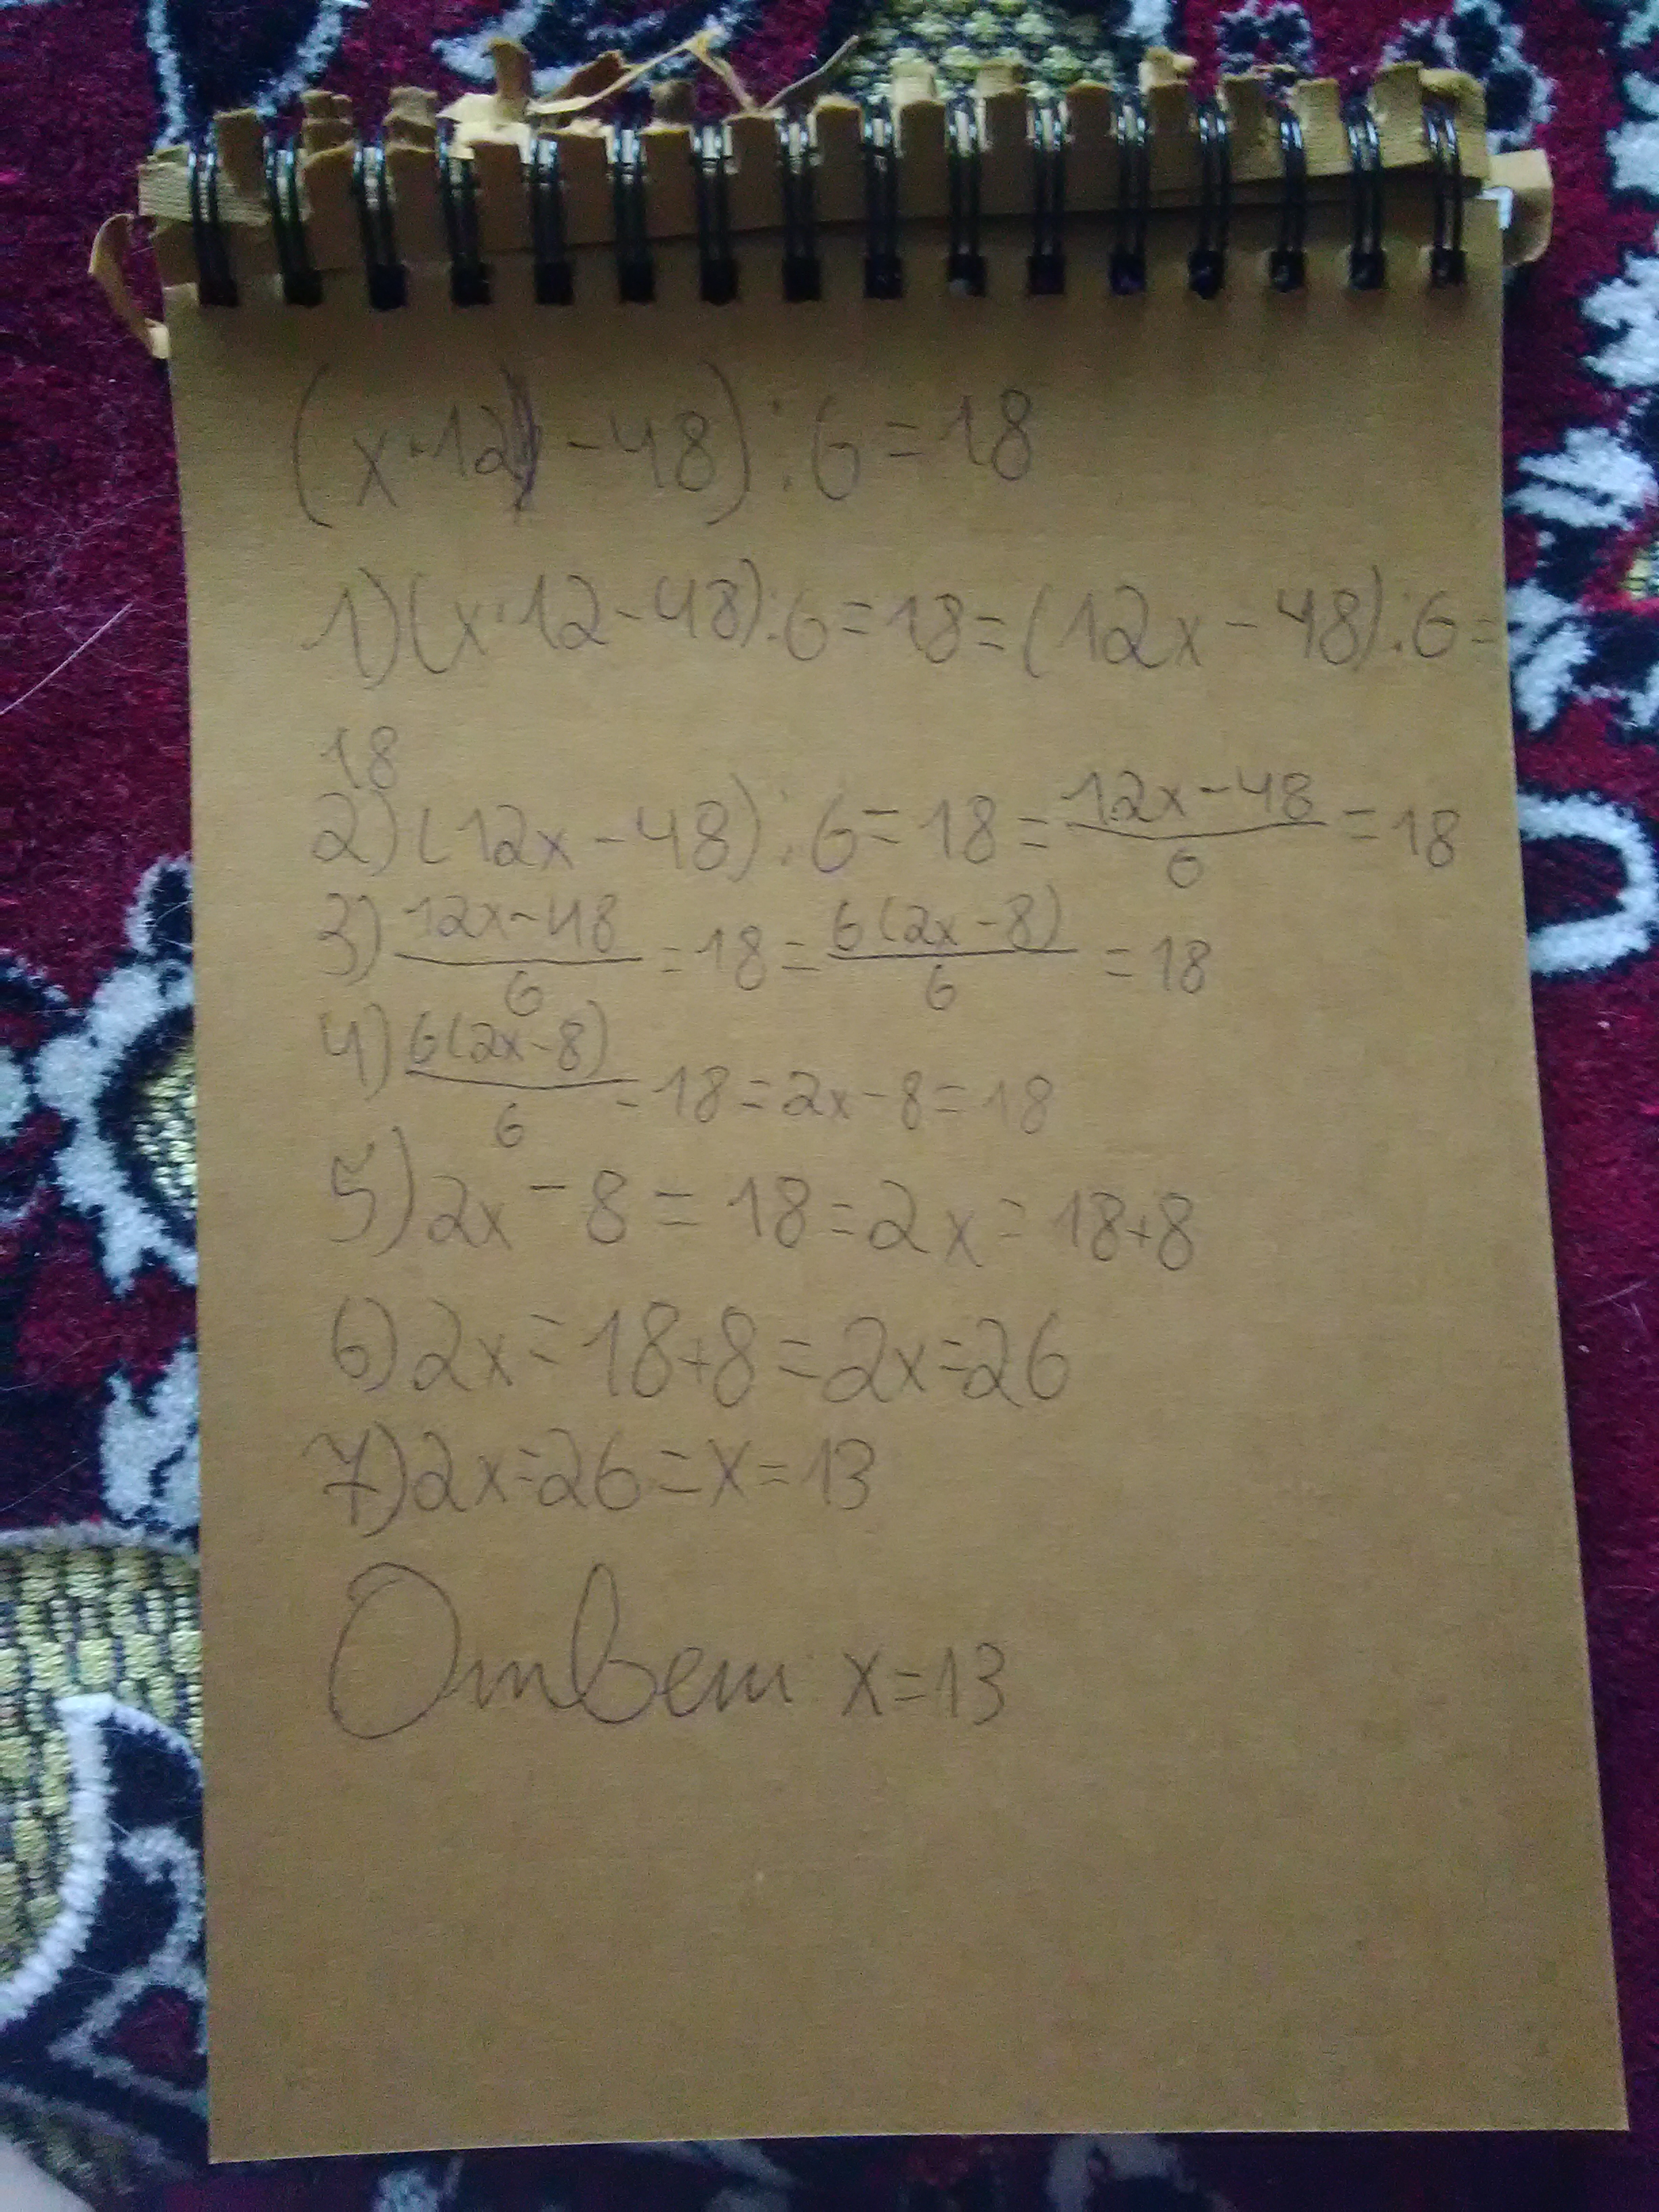 (x·12) -48):6=18
1)(x·12-48):6=18=(12x-48):6=
18
2)(12x-48):6=18=\frac{12x-48}{6}=18
3)\frac{12x-48}{6}=18=\frac{6(2x-8)}{6}=18
4)\frac{6(2x-8)}{6}=18=2x-8=18
5)2x-8=18=2x=18+8
6)2x=18+8=2x=26
7)2x=26=x=13
Ответ x=13